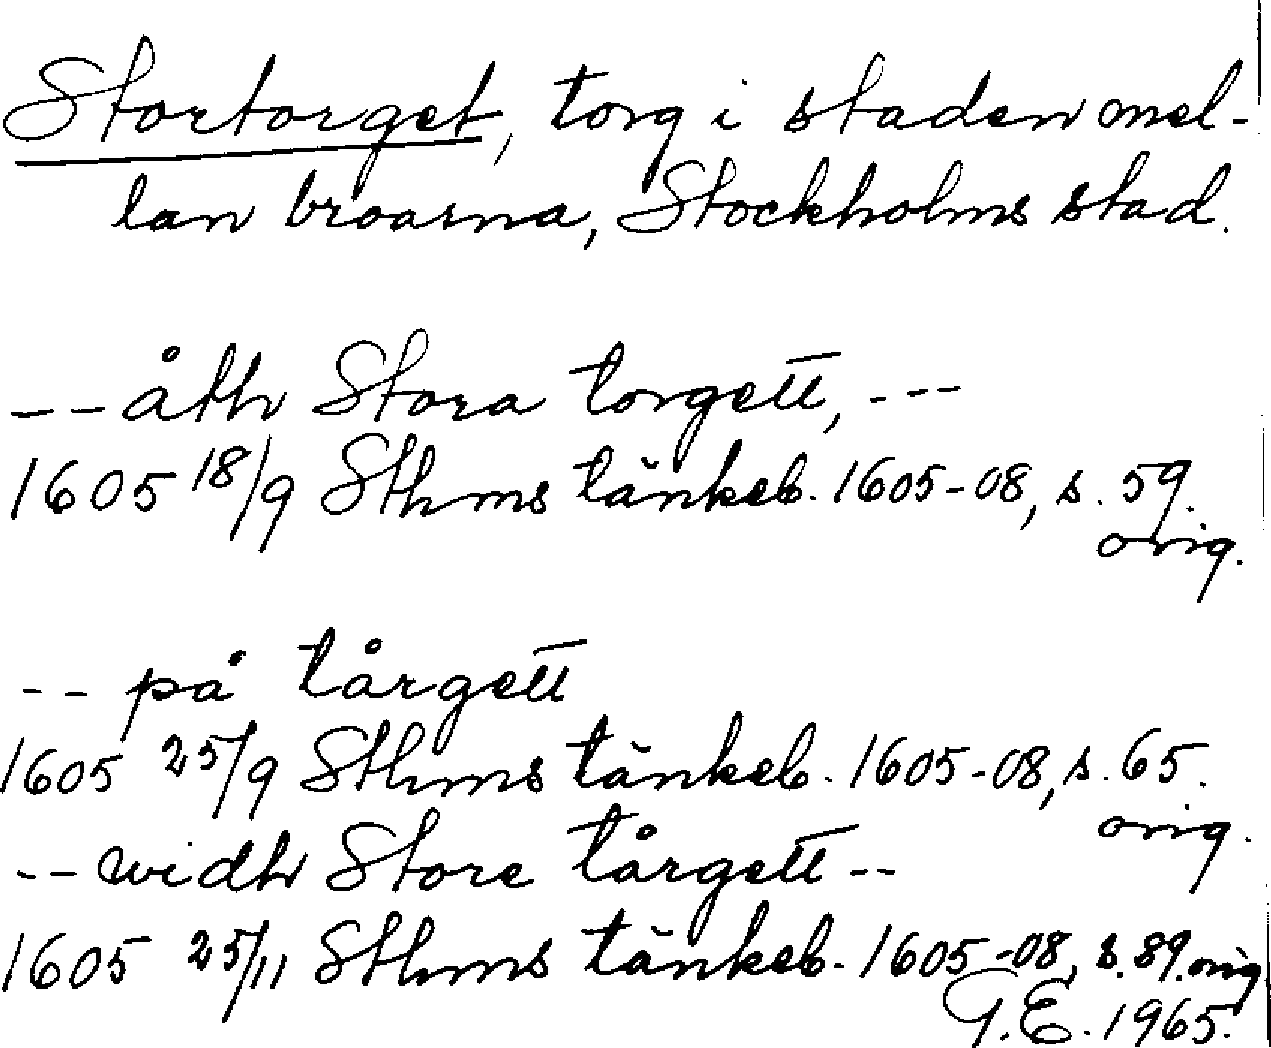 Stortorget, torg i staden mel-
lan broarna, Stockholms stad.
-- åth Stora torgett, ---
1605 18/9 Sthms tänkeb. 1605-08, s. 59.
orig.
-- på tårgett
1605 25/9 Sthms tänkeb. 1605-08, s. 65.
orig.
-- widh Store tårgett --
1605 25/11 Sthms tänkeb. 1605-08, s. 89. orig
G.E. 1965.